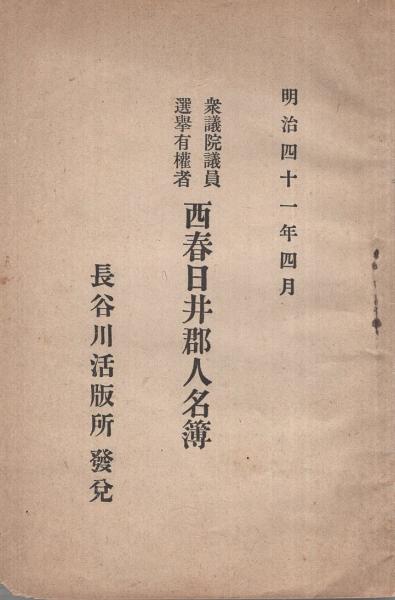 明治四十一年四月
衆議院議員
選擧有權者
西春日井郡人名簿
長谷川活版所發兌